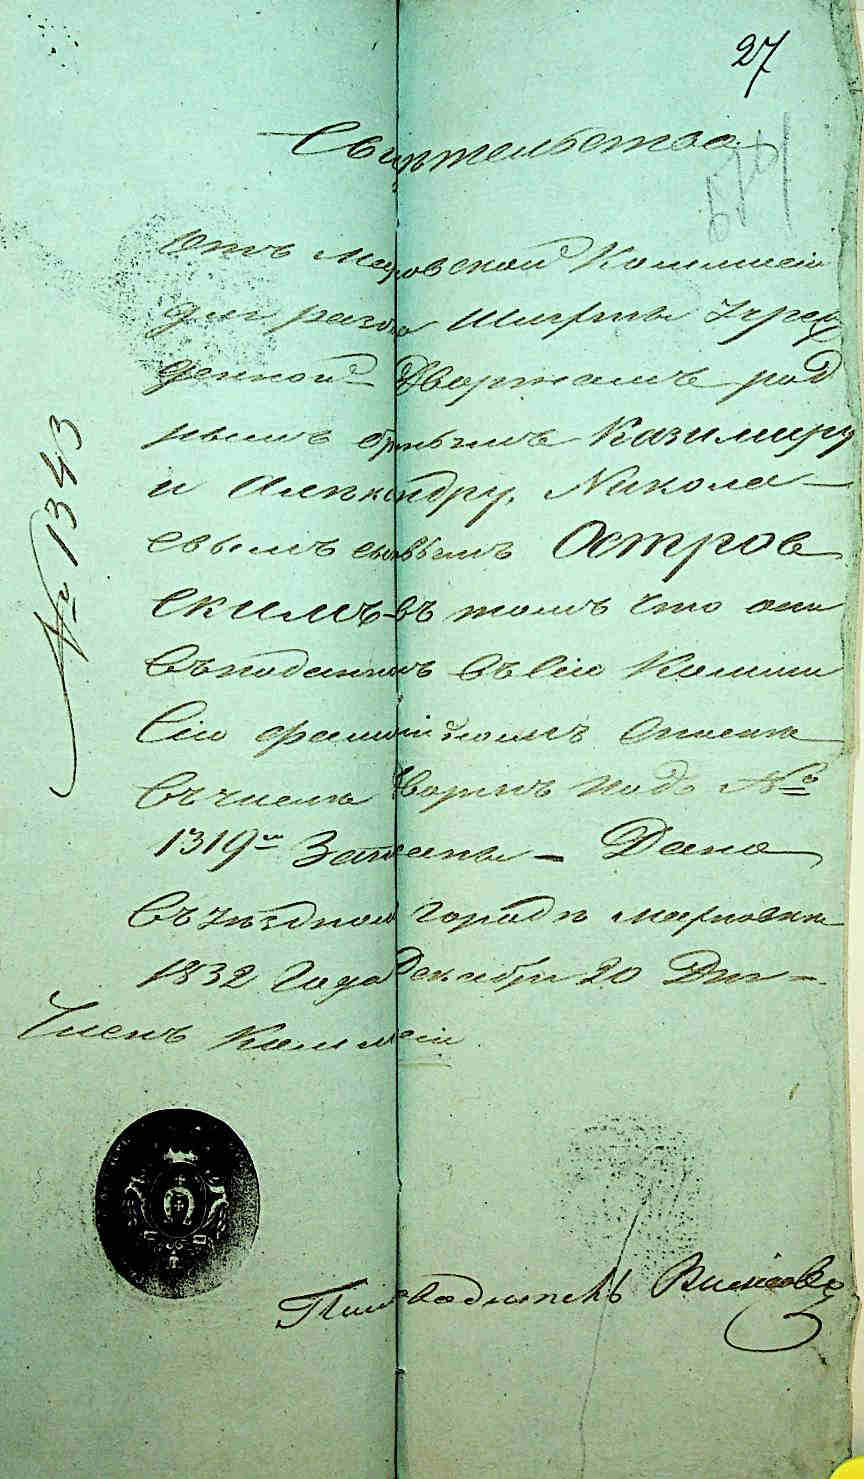 27
Свидѣтельство
Отъ Махновской Коммисіи
для разбора Шляхты Учреж
денной Дворянамъ род
нымъ братьямъ Казимиру
и Александру, Никола-
евымъ сыновьямъ Остров
скимъ въ томъ что они
въ поданномъ въ сію Коммис
сію фамильномъ списке
въ числѣ дворянъ подъ №
1319м Записаны - Дано
въ уѣздномъ городѣ Махновке
1832 Года Декабря 20 Дня -
Членъ Коммисіи
Письмоводитель
№ 1343